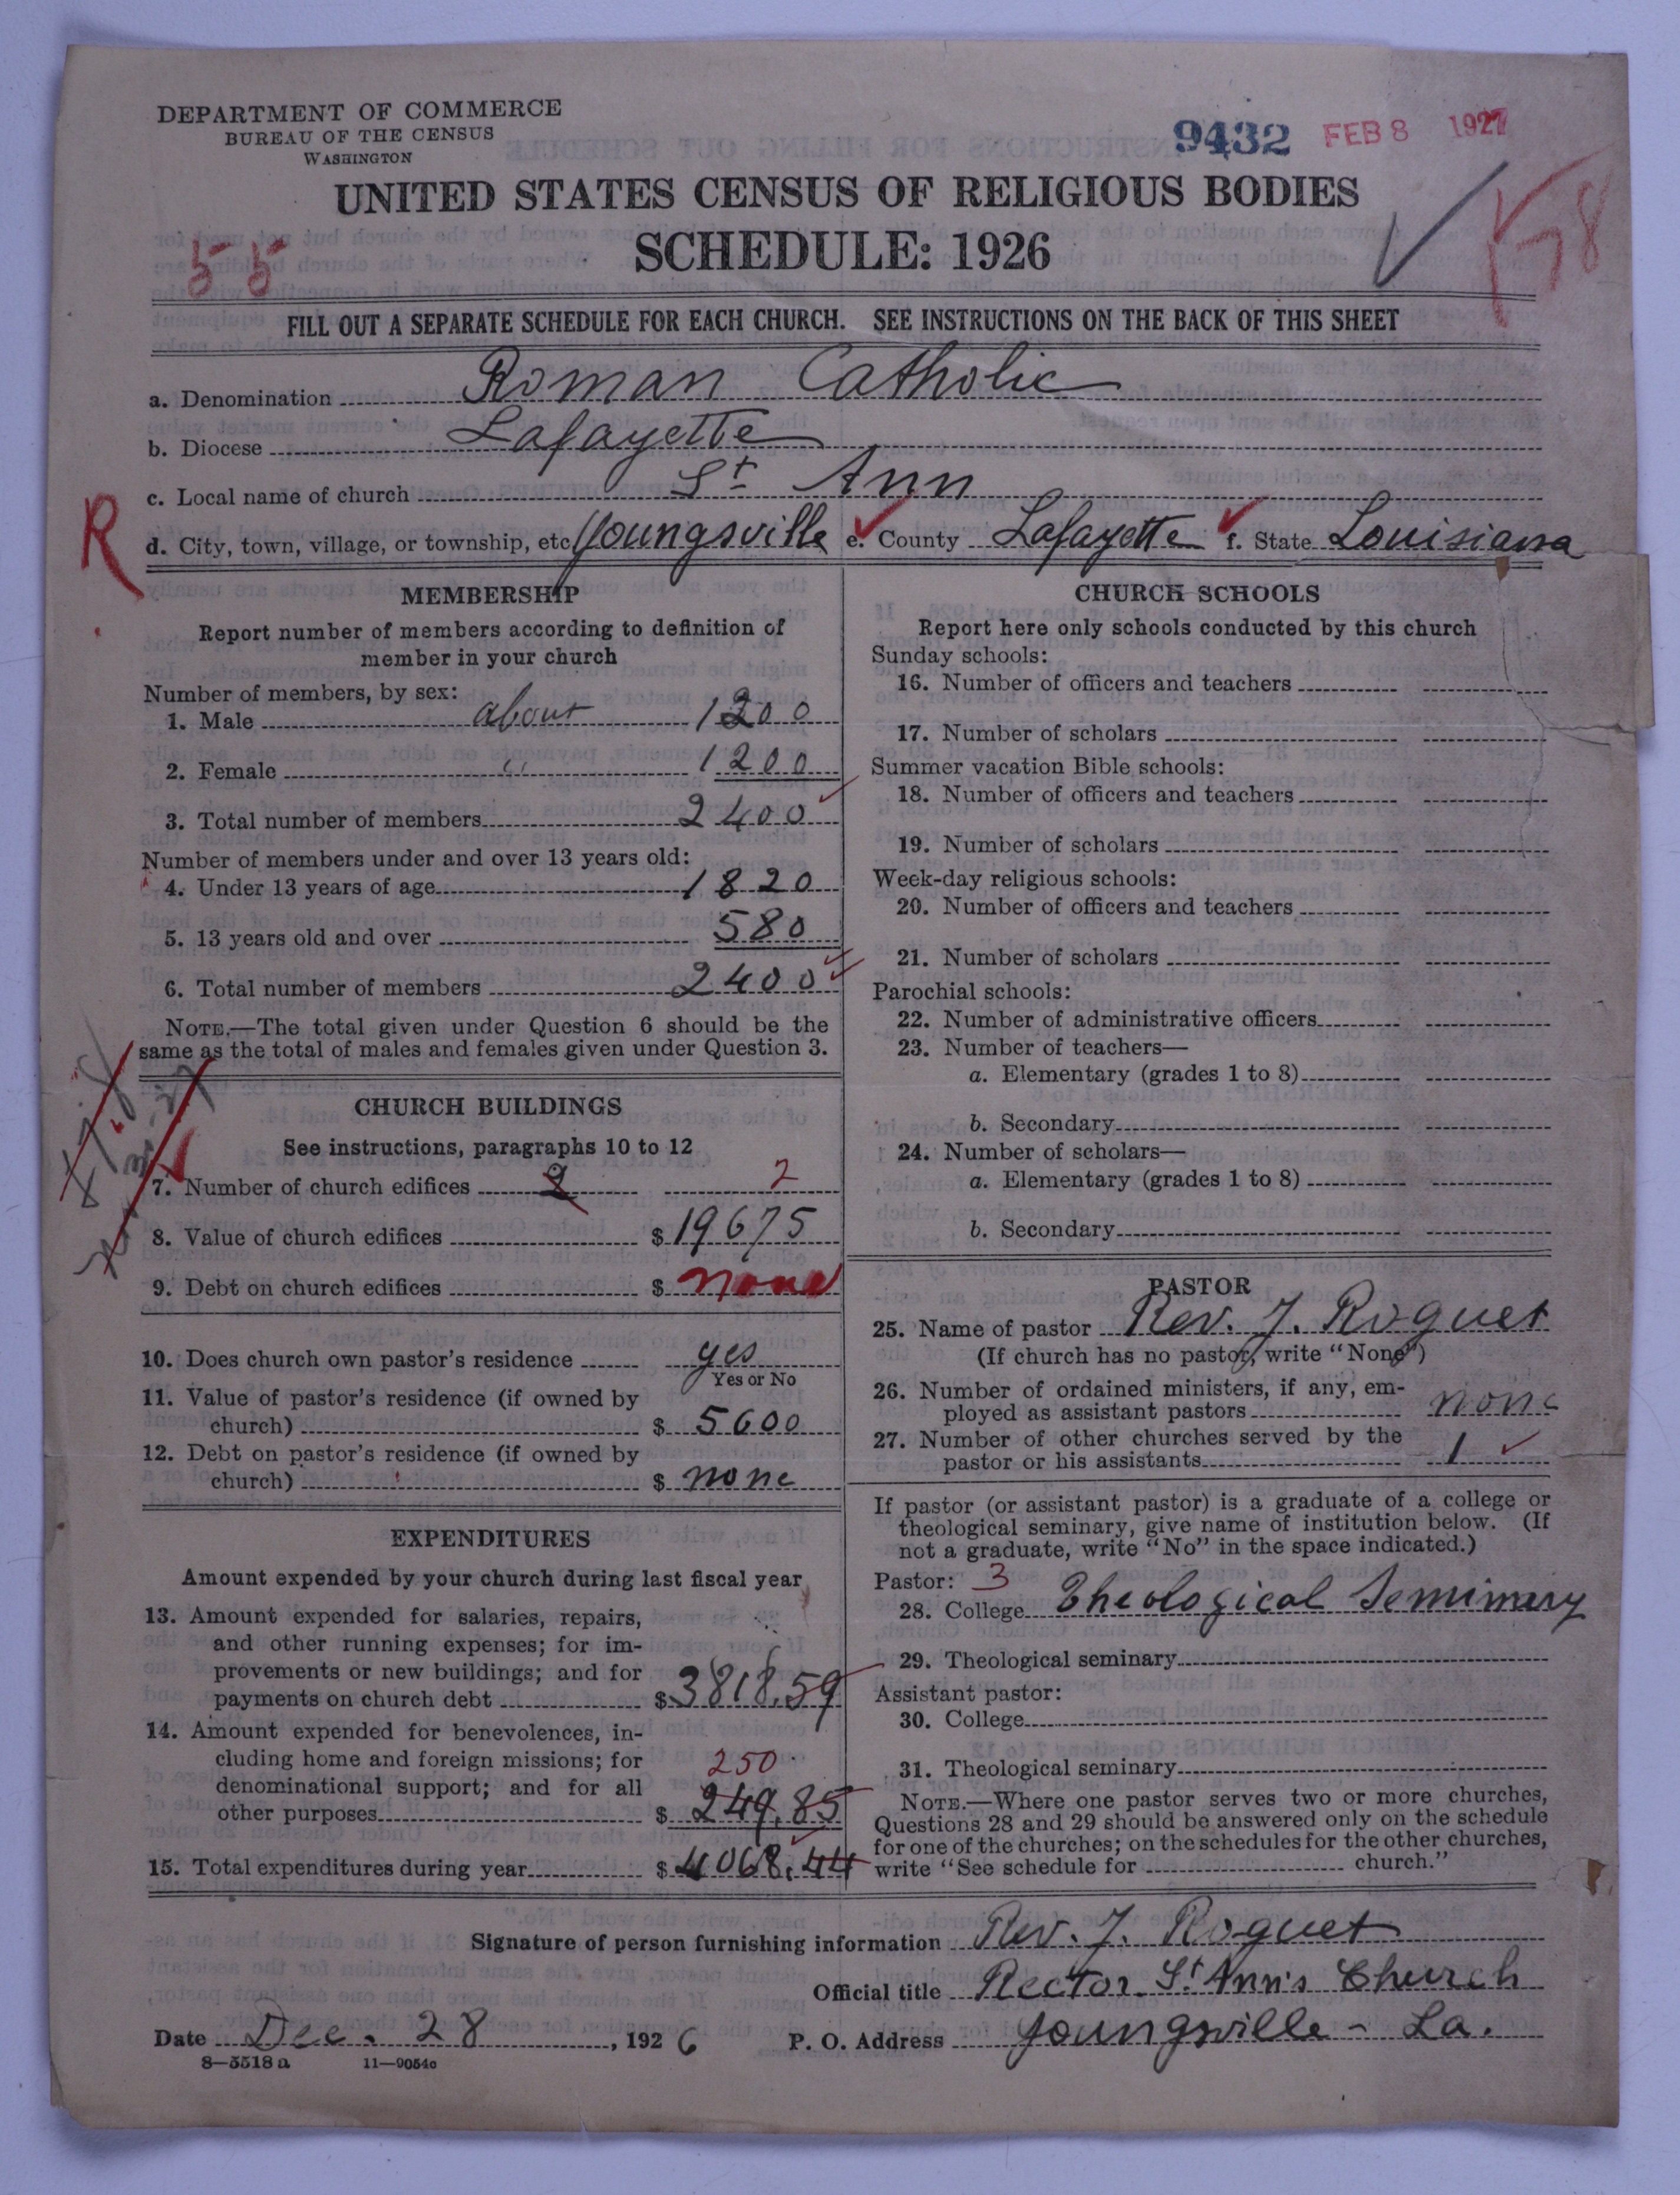 DEPARTMENT OF COMMERCE
BUREAU OF THE CENSUS
WASHINGTON
9432 FEB 8 1927
UNITED STATES CENSUS OF RELIGIOUS BODIES
SCHEDULE: 1926
55
FILL OUT A SEPARATE SCHEDULE FOR EACH CHURCH. SEE INSTRUCTIONS ON THE BACK OF THIS SHEET
a. Denomination Roman Catholic
b. Diocese Lafayette
c. Local name of church St Ann
R
d. City, town, village, or township, etc Youngsville e. County Lafayette f. State Louisiana
MEMBERSHIP
Report number of members according to definition of
member in your church
Number of members, by sex:
1. Male about 1200
2. Female " 1200
3. Total number of members 2400
Number of members under and over 13 years old:
4. Under 13 years of age 1820
5. 13 years old and over 580
6. Total number of members 2400
NOTE.—The total given under Question 6 should be the
same as the total of males and females given under Question 3.
CHURCH BUILDINGS
See instructions, paragraphs 10 to 12
7. Number of church edifices 2 2
8. Value of church edifices $ 19675
9. Debt on church edifices $ none
10. Does church own pastor's residence yes
Yes or No
11. Value of pastor's residence (if owned by
church) $ 5600
12. Debt on pastor's residence (if owned by
church) $ none
EXPENDITURES
Amount expended by your church during last fiscal year
13. Amount expended for salaries, repairs,
and other running expenses; for im-
provements or new buildings; and for
payments on church debt $ 3818.59
14. Amount expended for benevolences, in-
cluding home and foreign missions; for
250
denominational support; and for all
other purposes $ 249.85
15. Total expenditures during year $ 4068.44
CHURCH SCHOOLS
Report here only schools conducted by this church
Sunday schools:
16. Number of officers and teachers
17. Number of scholars
Summer vacation Bible schools:
18. Number of officers and teachers
19. Number of scholars
Week-day religious schools:
20. Number of officers and teachers
21. Number of scholars
Parochial schools:
22. Number of administrative officers
23. Number of teachers—
a. Elementary (grades 1 to 8)
b. Secondary
24. Number of scholars—
a. Elementary (grades 1 to 8)
b. Secondary
PASTOR
25. Name of pastor Rev. J. Roguet
(If church has no pastor, write "None")
26. Number of ordained ministers, if any, em-
ployed as assistant pastors none
27. Number of other churches served by the
pastor or his assistants 1
If pastor (or assistant pastor) is a graduate of a college or
theological seminary, give name of institution below. (If
not a graduate, write "No" in the space indicated.)
Pastor: 3
28. College Theological Semimary
29. Theological seminary
Assistant pastor:
30. College
31. Theological seminary
NOTE.—Where one pastor serves two or more churches,
Questions 28 and 29 should be answered only on the schedule
for one of the churches; on the schedules for the other churches,
write "See schedule for church."
Signature of person furnishing information Rev. J. Roguet
Official title Rector St Ann's Church
Date Dec. 28, 1926 P. O. Address Youngsville - La.
8—5518a 11—9054c